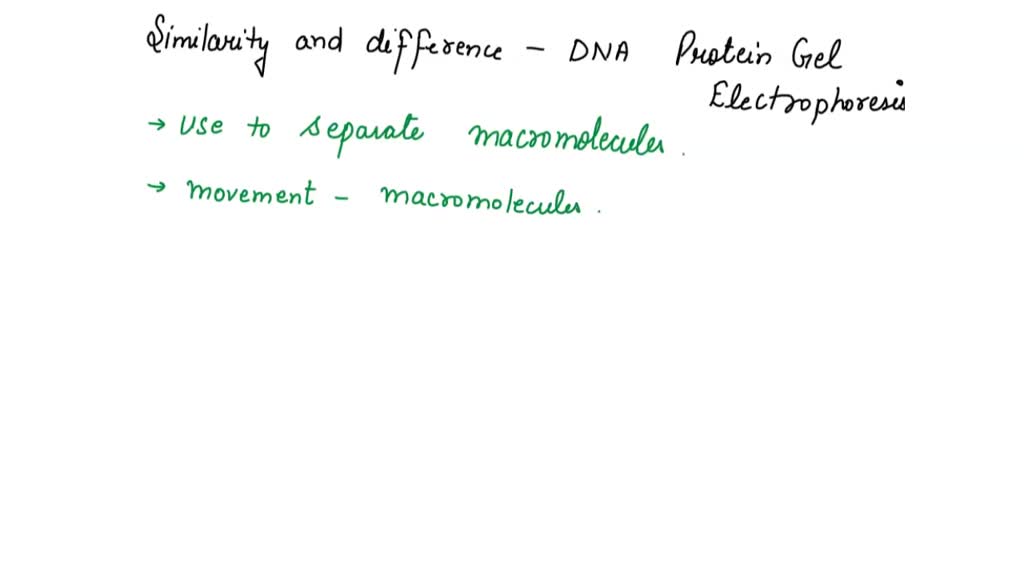 Similarity and difference - DNA Protein Gel
Electrophoresis
→ Use to separate macromolecules.
→ movement - macromolecules.